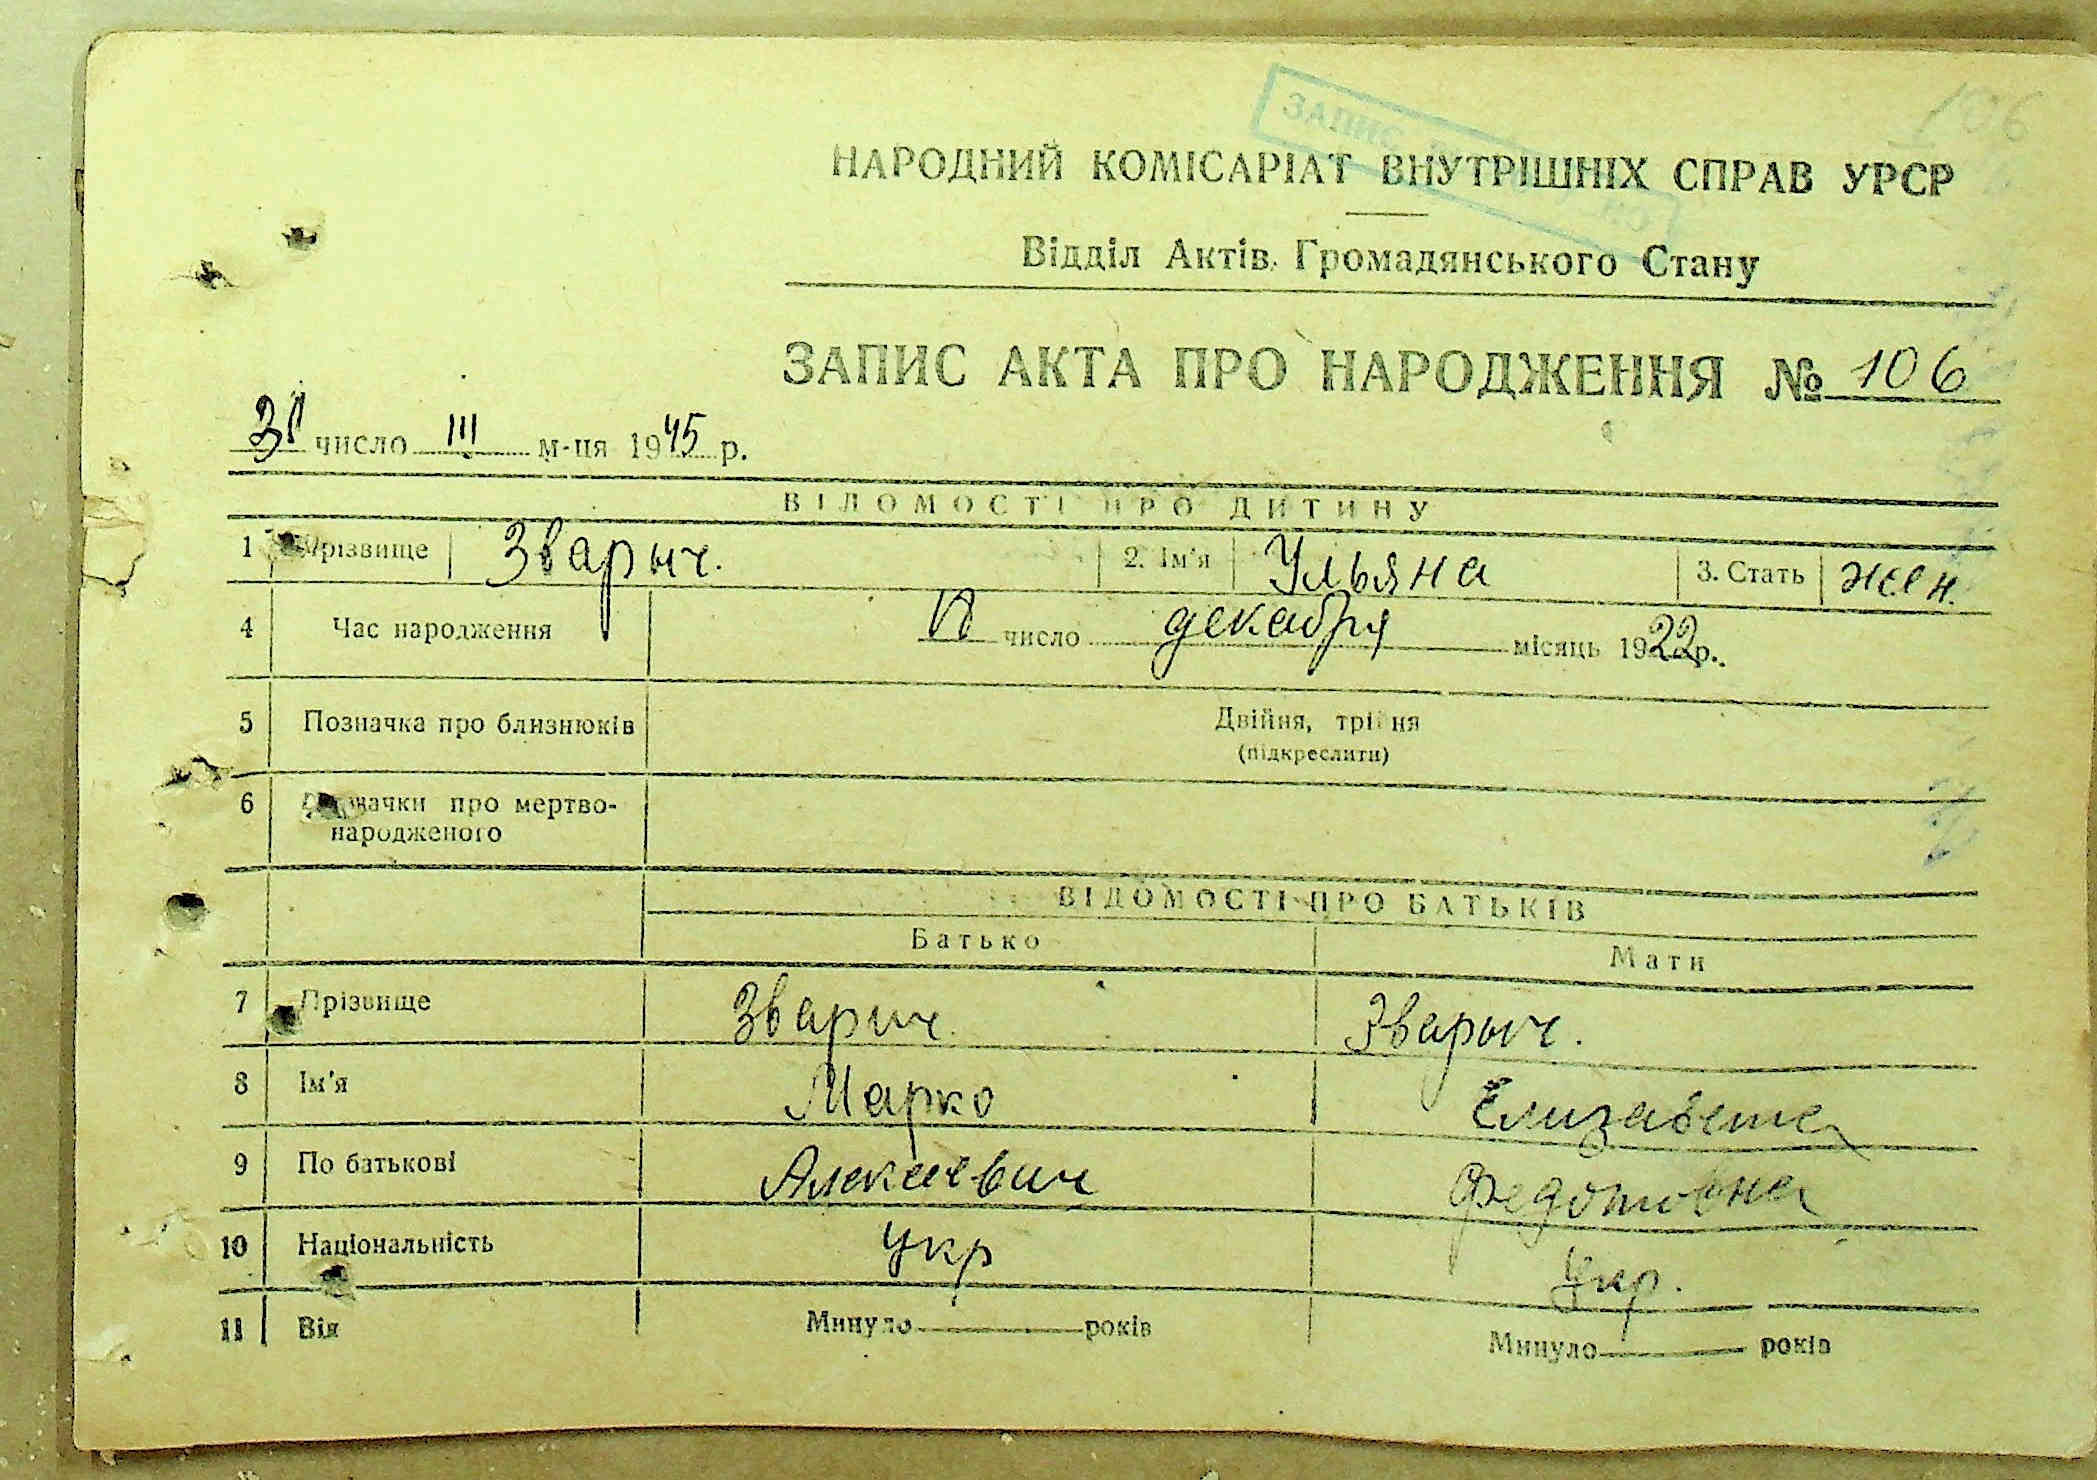 106
ЗАПИС
НАРОДНИЙ КОМІСАРІАТ ВНУТРІШНІХ СПРАВ УРСР
Відділ Актів Громадянського Стану
ЗАПИС АКТА ПРО НАРОДЖЕННЯ № 106
31 число III м-ця 1945 р.
ВІДОМОСТІ ПРО ДИТИНУ
1 Прізвище Зварыч. 2. Ім'я Ульяна 3. Стать жен.
4 Час народження число декабря місяць 1922 р.
5 Позначка про близнюків Двійня, трійня
(підкреслити)
6 Позначки про мертво-
народженого
ВІДОМОСТІ ПРО БАТЬКІВ
Батько Мати
7 Прізвище Зварич. Зварыч.
8 Ім'я Марко Елизавета
9 По батькові Алексеевич Федотовна
10 Національність Укр Укр.
11 Вік Минуло років Минуло років